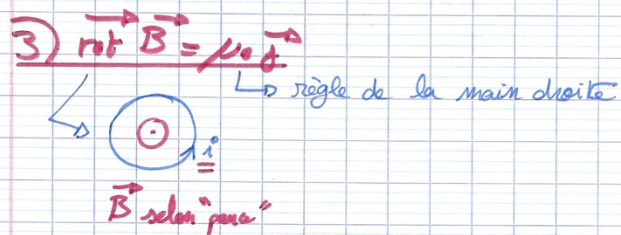 3) rot B = μ₀ j
règle de la main droite
i
B selon "pouce"